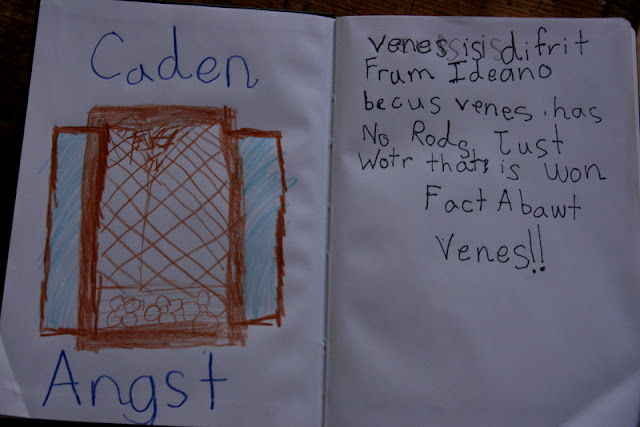 Caden
Angst
venes is difrit
Frum Ideano
becus venes has
No Rods, Just
Wotr that is won
Fact Abawt
Venes!!